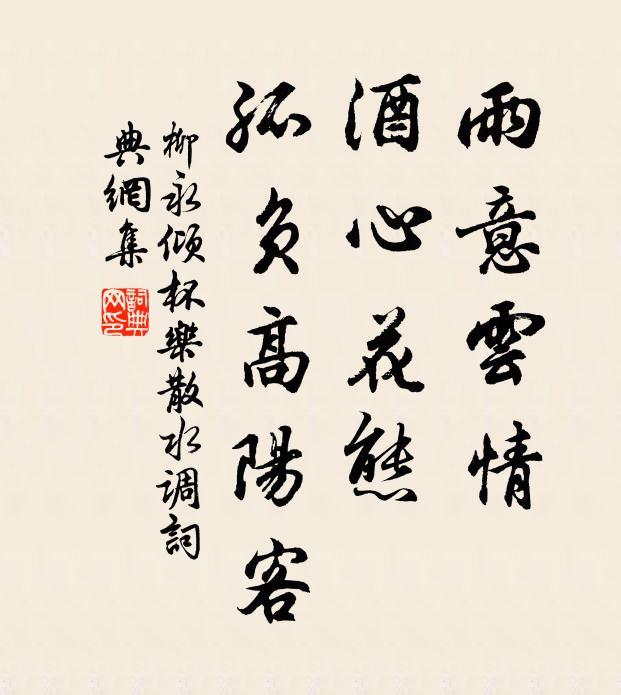 雨意雲情
酒心花態
孤負高陽客
柳永傾杯樂散水调詞
典網集
詞典
网印